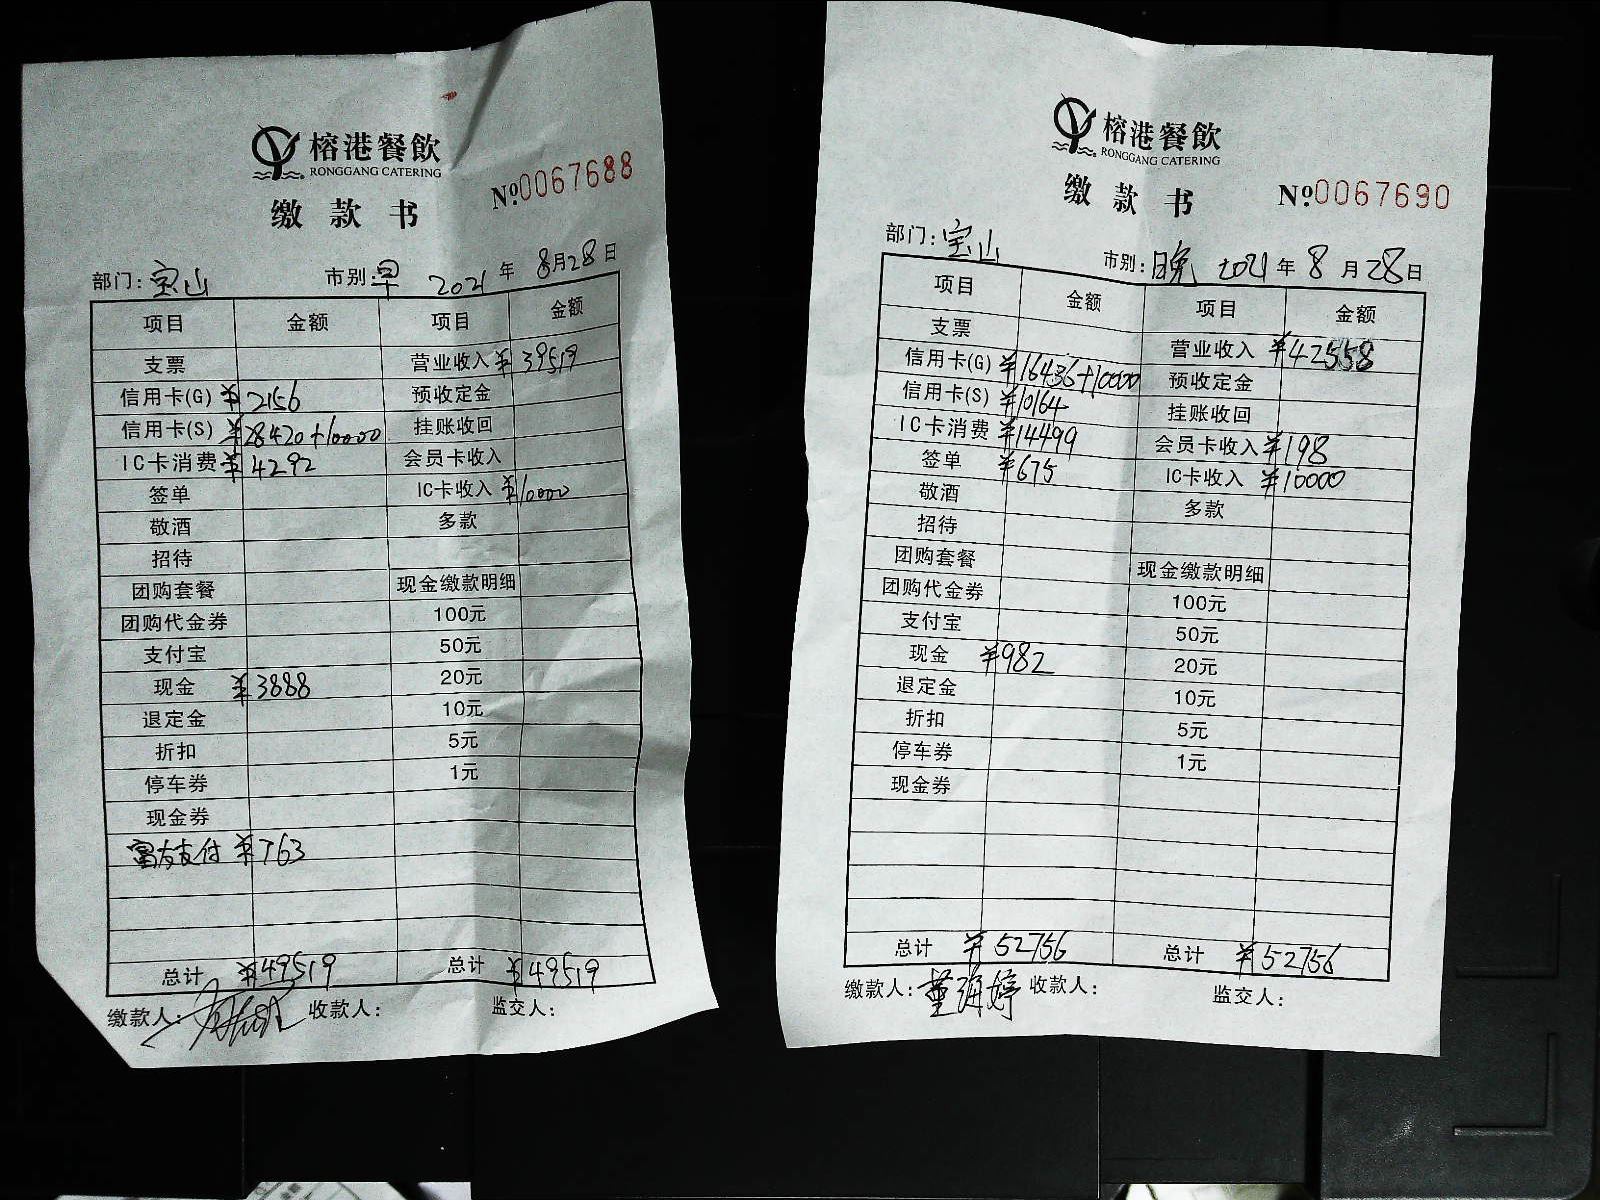 榕港餐飲
RONGGANG CATERING
缴款书
№0067688
部门:宝山 市别:早 2021年8月28日
项目 金额 项目 金额
支票 营业收入 ¥39519
信用卡(G) ¥2156 预收定金
信用卡(S) ¥28420+10000 挂账收回
IC卡消费 ¥4292 会员卡收入
签单 IC卡收入 ¥10000
敬酒 多款
招待
团购套餐 现金缴款明细
团购代金券 100元
支付宝 50元
现金 ¥3888 20元
退定金 10元
折扣 5元
停车券 1元
现金券
富友支付 ¥763
总计 ¥49519 总计 ¥49519
缴款人: 收款人: 监交人:
榕港餐飲
RONGGANG CATERING
缴款书
№0067690
部门:宝山 市别:晚 2021年8月28日
项目 金额 项目 金额
支票 营业收入 ¥42558
信用卡(G) ¥16436+10000 预收定金
信用卡(S) ¥10164 挂账收回
IC卡消费 ¥14499 会员卡收入 ¥198
签单 ¥675 IC卡收入 ¥10000
敬酒 多款
招待
团购套餐 现金缴款明细
团购代金券 100元
支付宝 50元
现金 ¥982 20元
退定金 10元
折扣 5元
停车券 1元
现金券
总计 ¥52756 总计 ¥52756
缴款人:董海婷 收款人: 监交人: